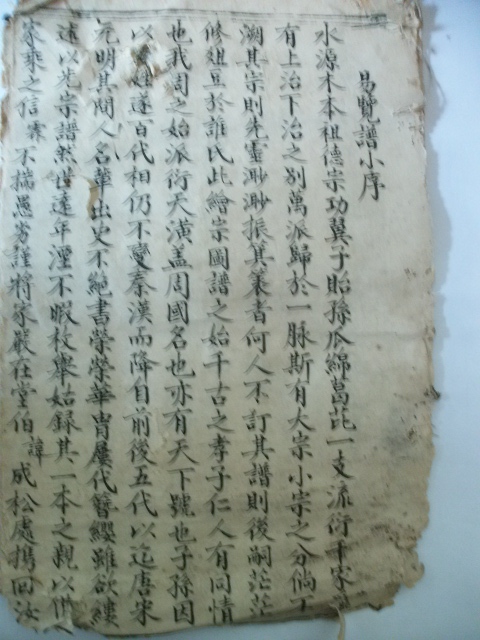 易覽譜小序
水源木本祖德宗功翼子貽孫瓜綿葛芘一支流衍千家
有上治下治之別萬派歸於一脉斯有大宗小宗之分倘丁
湖其宗則先靈渺渺振其業者何人不訂其譜則後嗣茫茫
修俎豆於誰氏此繪宗圖譜之始千古之孝子仁人有同情
也我周之始派衍天潢盖周國名也亦有天下號也子孫因
以為姓遂百代相仍不變秦漢而降自前後五代以迄唐宋
元明其間人名華出史不絕書榮榮華胄屢代簪纓雖欲縷
述以光宗譜然世遠年湮不暇枚舉始録其一本之親以供
之信霖不揣愚劣謹將家嚴在堂伯諱成松處携回汝